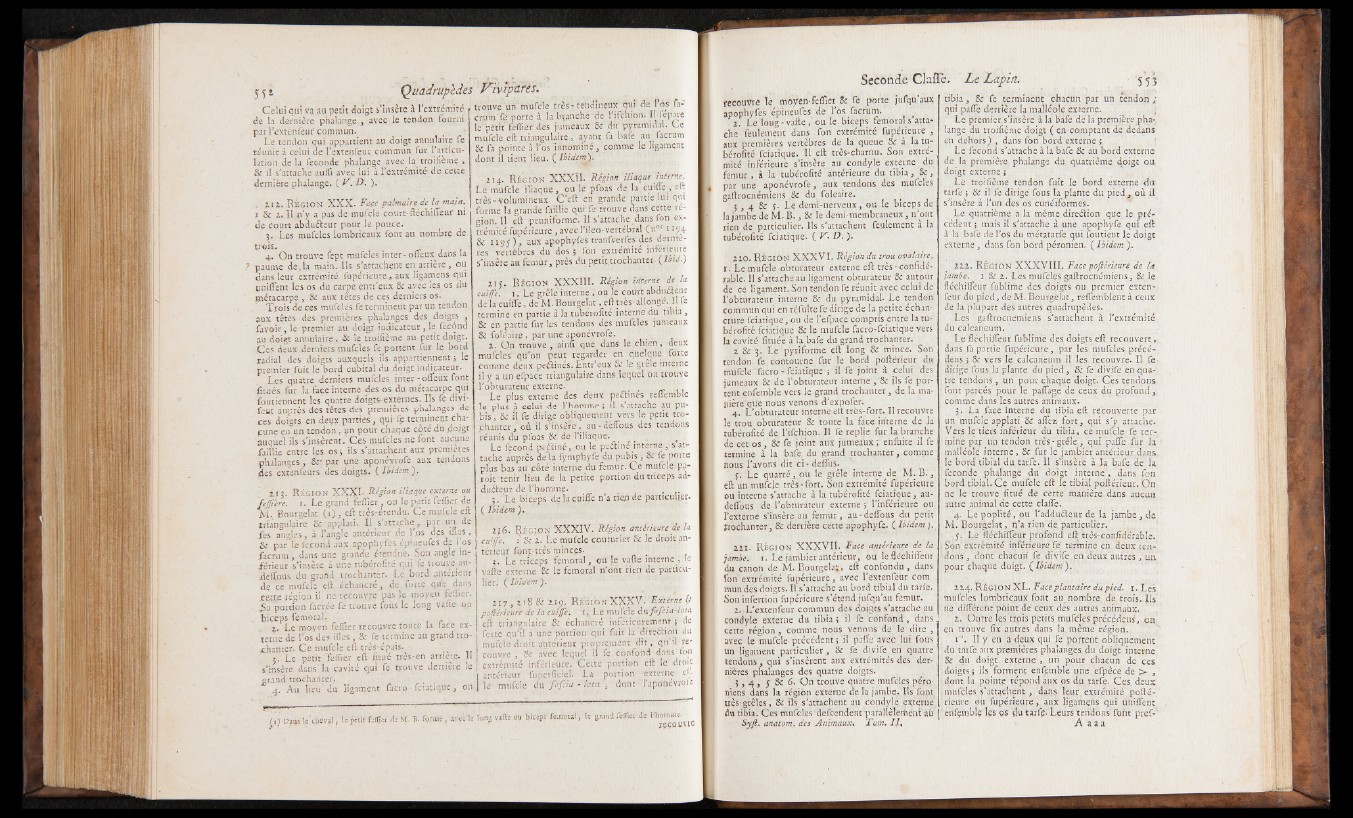 552 Quadrupèdes Vivipares.
Celui qui va au petit doigt s'insère à l'extrémité
de la dernière phalange, avec le tendon fourni
par l'extenseur commun.
Le tendon qui appartient au doigt annulaire se
réunit à celui de l'extenseur commun sur l'articu-
lation de la seconde phalange avec la troisième,
& il s'attache aussi avec lui à l'extrémité de cette
dernière phalange. ( V. D. ).
212. RÉGION XXX. Face palmaire de la main.
1 & 2. Il n'y a pas de muscle court-fléchisseur ni
de court abducteur pour le pouce.
3. Les muscles lombricaux sont au nombre de
trois.
4. On trouve sept muscles inter-osseux dans la
paume de la main. Ils s'attachent en arrière, ou
dans leur extrémité supérieure, aux ligamens qui
unissent les os du carpe entr'eux & avec les os du
métacarpe, & aux têtes de ces derniers os.
Trois de ces muscles se terminent par un tendon
aux têtes des premières phalanges des doigts,
savoir, le premier au doigt indicateur, le second
au doigt annulaire, & le troisième au petit doigt.
Ces deux derniers muscles se portent sur le bord
radial des doigts auxquels ils appartiennent; le
premier suit le bord cubital du doigt indicateur.
Les quatre derniers muscles inter-osseux sont
situés sur la face interne des os du métacarpe qui
soutiennent les quatre doigts externes. Ils se divi-
sent auprès des têtes des premières phalanges de
ces doigts en deux parties, qui se terminent cha-
cune en un tendon, un pour chaque côté du doigt
auquel ils s'insèrent. Ces muscles ne font aucune
saillie entre les os, ils s'attachent aux premières
phalanges, & par une aponévrose aux tendons
des extenseurs des doigts. ( Ibidem ).
213. RÉGION XXXI. Région iliaque externe ou
fessière. 1. Le grand fessier, ou le petit fessier de
M. Bourgelat (1), est très-étendu. Ce muscle est
triangulaire & applati. Il s'attache, par un de
ses angles, à l'angle antérieur de l'os des isles,
& par le second aux apophyses épineuses de l'os
sacrum, dans une grande étendue. Son angle in-
férieur s'insère à une tubérosité qui se trouve au-
dessous du grand trochanter. Le bord antérieur
de ce muscle est échancré, de sorte que dans
cette région il ne recouvre pas le moyen fessier.
Sa portion sacrée se trouve sous le long vaste ou
biceps femoral.
2. Le moyen fessier recouvre toute la face ex-
terne de l'os des isles, & se termine au grand tro-
chanter. Ce muscle est très-épais.
3. Le petit fessier est situé très-en arrière. Il
s'insère dans la cavité qui se trouve derrière le
grand trochanter.
4. Au lieu du ligament sacro-sciatique, on
trouve un muscle très-tendineux qui de l'os sa-
crum se porte à la branche de l'ischion. Il sépare
le petit fessier des jumeaux & du pyramidal. Ce
muscle est triangulaire, ayant sa base au sacrum
& sa pointe à l'os innominé, comme le ligament
dont il tient lieu. ( Ibidem ).
214. RÉGION XXXII. Région iliaque interne.
Le muscle iliaque, ou le psoas de la cuisse, est
très-volumineux. C'est en grande partie lui qui
forme la grande saillie qui se trouve dans cette ré-
gion. Il est penniforme. Il s'attache dans son ex-
trémité supérieure, avec l'ileo-vertébral (nos 1194
& 1195), aux apophyses transverses des derniè-
res vertèbres du dos; son extrémité inférieure
s'insère au femur, près du petit trochanter. ( Ibid.)
215. RÉGION XXXIII. Région interne de la
cuisse. 1. Le grêle interne, ou le court abducteur
de la cuisse, de M. Bourgelat, est très-allongé. Il se
termine en partie à la tubérosité interne du tibia,
& en partie sur les tendons des muscles jumeaux
& soléaire, par une aponévrose.
2. On trouve, ainsi que dans le chien, deux
muscles qu'on peut regarder en quelque sorte
comme deux pectinés. Entr'eux & le grêle interne
il y a un espace triangulaire dans lequel on trouve
l'obturateur externe.
Le plus externe des deux pectinés ressemble
le plus à celui de l'homme; il s'attache au pu-
bis, & il se dirige obliquement vers le petit tro-
chanter, où il s'insère, au-dessous des tendons
réunis du psoas & de l'iliaque.
Le second pectiné, ou le pectiné interne, s'at-
tache auprès de la symphyse du pubis, & se porte
plus bas au côté interne du femur. Ce muscle pa-
roit tenir lieu de la petite portion du triceps ad-
ducteur de l'homme.
3. Le biceps de la cuisse n'a rien de particulier.
( Ibidem ).
216. RÉGION XXXIV. Région antérieure de la
cuisse. 1 & 2. Le muscle couturier & le droit an-
térieur sont très minces.
3. Le triceps femoral, ou le vaste interne, le
vaste externe & le femoral n'ont rien de particu-
lier. ( Ibidem ).
217, 218 & 219. RÉGION XXXV. Externe &
postérieure de la cuisse. 1. Le muscle du fascia-lata
est triangulaire & échancré inférieurement; de
sorte qu'il a une portion qui suit la direction du
muscle droit antérieur proprement dit, qu'il re-
couvre, & avec lequel il se confond dans son
extrémité inférieure. Cette portion est le droit
antérieur superficiel. La portion externe est
le muscle du fascia-lata, dont l'aponévrose
(1) Dans le cheval, le petit fessier de M. B. forme, avec le long vaste ou biceps femoral, le grand fessier de l'homme.
recouvre
Seconde Classe. Le Lapin. 553
recouvre le moyen-fessier & se porte jusqu'aux
apophyses épineuses de l'os sacrum.
2. Le long-vaste, ou le biceps femoral s'atta-
che seulement dans son extrémité supérieure,
aux premières vertèbres de la queue & à la tu-
bérosité sciatique. Il est très-charnu. Son extré-
mité inférieure s'insère au condyle externe du
femur, à la tubérosité antérieure du tibia, &,
par une aponévrose, aux tendons des muscles
gastrocnémiens & du soleaire.
3, 4 & 5. Le demi-nerveux, ou le biceps de
la jambe de M. B., & le demi-membraneux, n'ont
rien de particulier. Ils s'attachent seulement à la
tubérosité sciatique. ( V. D. ).
220. RÉGION XXXVI. Région du trou ovalaire.
1. Le muscle obturateur externe est très-considé-
rable. Il s'attache au ligament obturateur & autour
de ce ligament. Son tendon se réunit avec celui de
l'obturateur interne & du pyramidal. Le tendon
commun qui en résulte se dirige de la petite échan-
crure sciatique, ou de l'espace compris entre la tu-
bérosité sciatique & le muscle sacro-sciatique vers
la cavité située à la base du grand trochanter.
2 & 3. Le pyriforme est long & mince. Son
tendon se contourne sur le bord postérieur du
muscle sacro-sciatique; il se joint à celui des
jumeaux & de l'obturateur interne, & ils se por-
tent ensemble vers le grand trochanter, de la ma-
nière que nous venons d'exposer.
4. L'obturateur interne est très-fort. Il recouvre
le trou obturateur & toute la face interne de la
tubérosité de l'ischion. Il se replie sur la branche
de cet os, & se joint aux jumeaux; ensuite il se
termine à la base du grand trochanter, comme
nous l'avons dit ci-dessus.
5. Le quarré, ou le grêle interne de M. B.,
est un muscle très-fort. Son extrémité supérieure
ou interne s'attache à la tubérosité sciatique, au-
dessous de l'obturateur externe; l'inférieure ou
l'externe s'insère au femur, au-dessous du petit
trochanter, & derrière cette apophyse. ( Ibidem ).
221. RÉGION XXXVII. Face antérieure de la
jambe. 1. Le jambier antérieur, ou le fléchisseur
du canon de M. Bourgelat, est confondu, dans
son extrémité supérieure, avec l'extenseur com
mun des doigts. Il s'attache au bord tibial du tarse.
Son insertion supérieure s'étend jusqu'au femur.
2. L'extenseur commun des doigts s'attache au
condyle externe du tibia; il se confond, dans
cette région, comme nous venons de le dire,
avec le muscle précédent; il passe avec lui sous
un ligament particulier, & se divise en quatre
tendons, qui s'insèrent aux extrémités des der-
nières phalanges des quatre doigts.
3, 4, 5 & 6. On trouve quatre muscles péro-
niens dans la région externe de la jambe. Ils sont
très-grêles, & ils s'attachent au condyle externe
du tibia. Ces muscles descendent parallèlement au
Syst. anatom. des Animaux. Tom. II.
tibia, & se terminent chacun par un tendon;
qui passe derrière la malléole externe.
Le premier s'insère à la base de la première pha-
lange du troisième doigt ( en comptant de dedans
en dehors ), dans son bord externe;
Le second s'attache à la base & au bord externe
de la première phalange du quatrième doigt ou
doigt externe;
Le troisième tendon suit le bord externe du
tarse; & il se dirige sous la plante du pied, où il
s'insère à l'un des os cunéiformes.
Le quatrième a la même direction que le pré-
cédent; mais il s'attache à une apophyse qui est
à la base de l'os du métatarse qui soutient le doigt
externe, dans son bord péronien. ( Ibidem ).
222. RÉGION XXXVIII. Face postérieure de la
jambe. 1 & 2. Les muscles gastrocnémiens, & le
fléchisseur sublime des doigts ou premier exten-
seur du pied, de M. Bourgelat, ressemblent à ceux
de la plupart des autres quadrupèdes.
Les gastrocnemiens s'attachent à l'extrémité
du calcaneum.
Le fléchisseur sublime des doigts est recouvert,
dans sa partie supérieure, par les muscles précé-
dens; & vers le calcaneum il les recouvre. Il se
dirige sous la plante du pied, & se divise en qua-
tre tendons, un pour chaque doigt. Ces tendons
sont percés pour le passage de ceux du profond,
comme dans les autres animaux.
3. La face interne du tibia est recouverte par
un muscle applati & assez fort, qui s'y attache.
Vers le tiers inférieur du tibia, ce muscle se ter-
mine par un tendon très-grêle, qui passe sur la
malléole interne, & sur le jambier antérieur dans
le bord tibial du tarse. Il s'insère à la base de la
seconde phalange du doigt interne, dans son
bord tibial. Ce muscle est le tibial postérieur. On
ne le trouve situé de cette manière dans aucun
autre animal de cette classe.
4. Le poplité, ou l'adducteur de la jambe, de
M. Bourgelat, n'a rien de particulier.
5. Le fléchisseur profond est très-considérable.
Son extrémité inférieure se termine en deux ten-
dons, dont chacun se divise en deux autres, un
pour chaque doigt. ( Ibidem ).
224. RÉGION XL. Face plantaire du pied. 1. Les
muscles lombricaux sont au nombre de trois. Ils
ne diffèrent point de ceux des autres animaux.
2. Outre les trois petits muscles précédens, on
en trouve six autres dans la même région.
1°. Il y en a deux qui se portent obliquement
du tarse aux premières phalanges du doigt interne
& du doigt externe, un pour chacun de ces
doigts; ils forment ensemble une espèce de >,
dont la pointe répond aux os du tarse. Ces deux
muscles s'attachent, dans leur extrémité posté-
rieure ou supérieure, aux ligamens qui unissent
ensemble les os du tarse. Leurs tendons sont pres-
A a a a